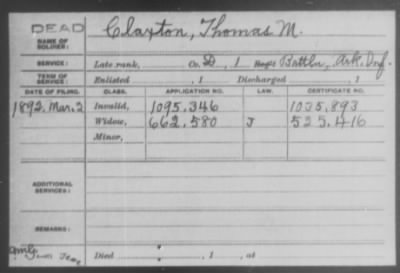 DEAD
NAME OF SOLDIER: Claxton, Thomas M.
SERVICE: Late rank, Co. D, 1 Reg't Battln, Ark. Inf.
TERM OF SERVICE: Enlisted , 1 Discharged , 1
DATE OF FILING. CLASS. APPLICATION NO. LAW. CERTIFICATE NO.
1892, Mar. 2 Invalid, 1095.346 1035.893
Widow, 662.580 J 525.416
Minor,
ADDITIONAL SERVICES:
REMARKS:
Died , 1 , at